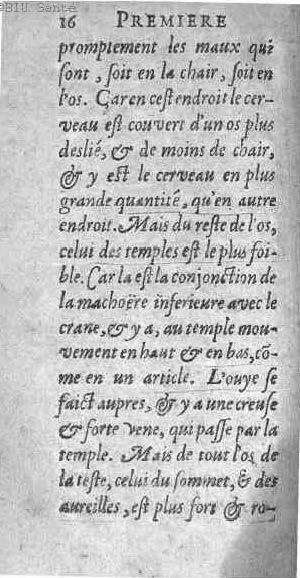 ©BIU Santé
16 PREMIERE
promptement les maux qui
ſont, ſoit en la chair, ſoit en
l'os. Car en ceſt endroit le cer-
veau eſt couvert d'un os plus
deslié, & de moins de chair,
& y eſt le cerveau en plus
grande quantité, qu'en autre
endroit. Mais du reſte de l'os,
celui des temples eſt le plus foi-
ble. Car la eſt la conjonction de
la machoëre inferieure avec le
crane, & y a, au temple mou-
vement en haut & en bas, cõ-
me en un article. L'ouye ſe
faict aupres, & y a une creuſe
& forte vene, qui paſſe par la
temple. Mais de tout l'os de
la teſte, celui du ſommet, & des
aureilles, eſt plus fort & ro-